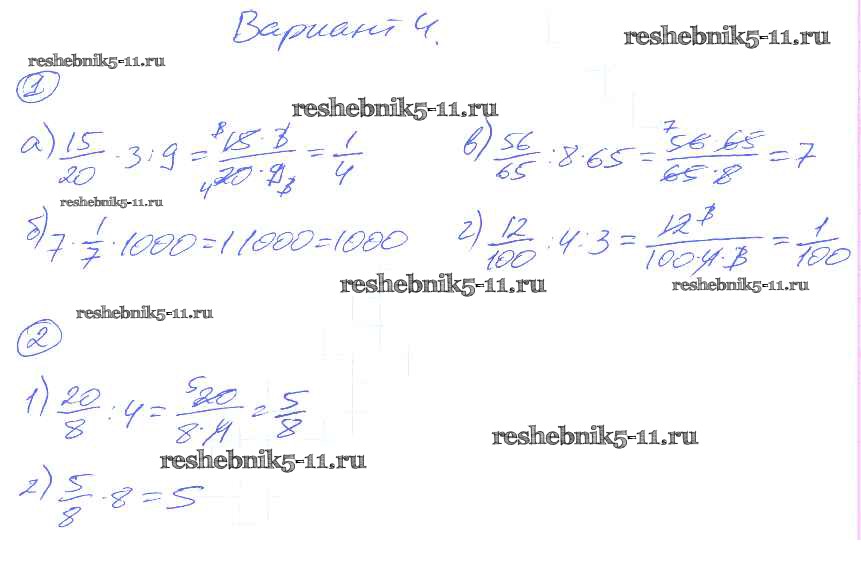 Вариант 4.
reshebnik5-11.ru
reshebnik5-11.ru
1
reshebnik5-11.ru
а) 15/20 · 3 : 9 = 15·3/20·9 = 1/4
в) 56/65 : 8 · 65 = 56·65/65·8 = 7
reshebnik5-11.ru
б) 7 · 1/7 · 1000 = 1 1000 = 1000
г) 12/100 : 4 : 3 = 12/100·4·3 = 1/100
reshebnik5-11.ru
reshebnik5-11.ru
reshebnik5-11.ru
2
1) 20/8 : 4 = 20/8·4 = 5/8
reshebnik5-11.ru
reshebnik5-11.ru
2) 5/8 · 8 = 5